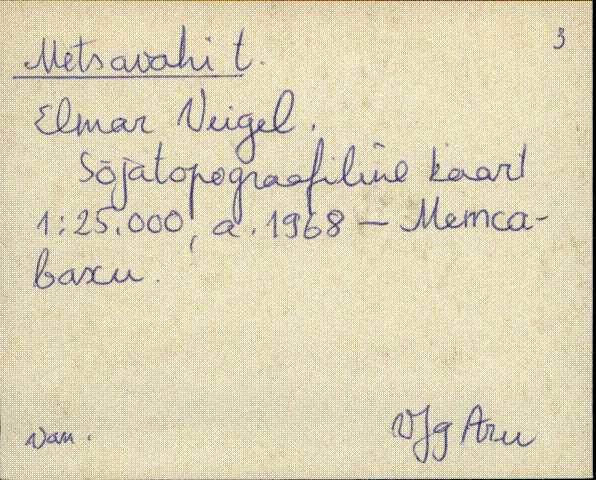 3
Metsavahi t.
Elmar Veigel.
Sõjatopograafiline kaart
1:25.000, a. 1968 — Метса-
вахи.
Van.
VJg Aru